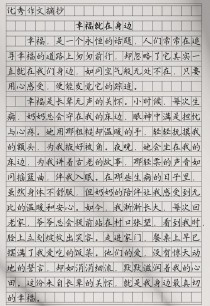 优秀作文摘抄
幸福就在身边
幸福，是一个永恒的话题，人们常常在追
寻幸福的道路上匆匆前行，却忽略了它其实一
直就在我们身边，如同空气般无处不在，只要
用心感受，便能发觉它的踪迹。
幸福是长辈无声的关怀。小时候，每次生
病，奶奶总会守在我的床边，眼神中满是担忧
与心疼。她用那粗糙却温暖的手，轻轻抚摸我
的额头，为我掖好被角。夜晚，她会坐在我的
床边，为我讲着古老的故事，那轻柔的声音如
同摇篮曲，伴我入眠。在那些生病的日子里，
虽然身体不舒服，但奶奶的陪伴让我感受到无
比的温暖和安心。如今，我渐渐长大，每次回
老家，爷爷总会提前站在村口张望，看到我时
脸上立刻绽放出笑容。走进家门，餐桌上早已
摆满了我爱吃的饭菜。他们的爱，没有惊天动
地的誓言，却如涓涓细流，默默滋润着我的心
田，这份来自长辈的关怀，就是我身边最真切
的幸福。